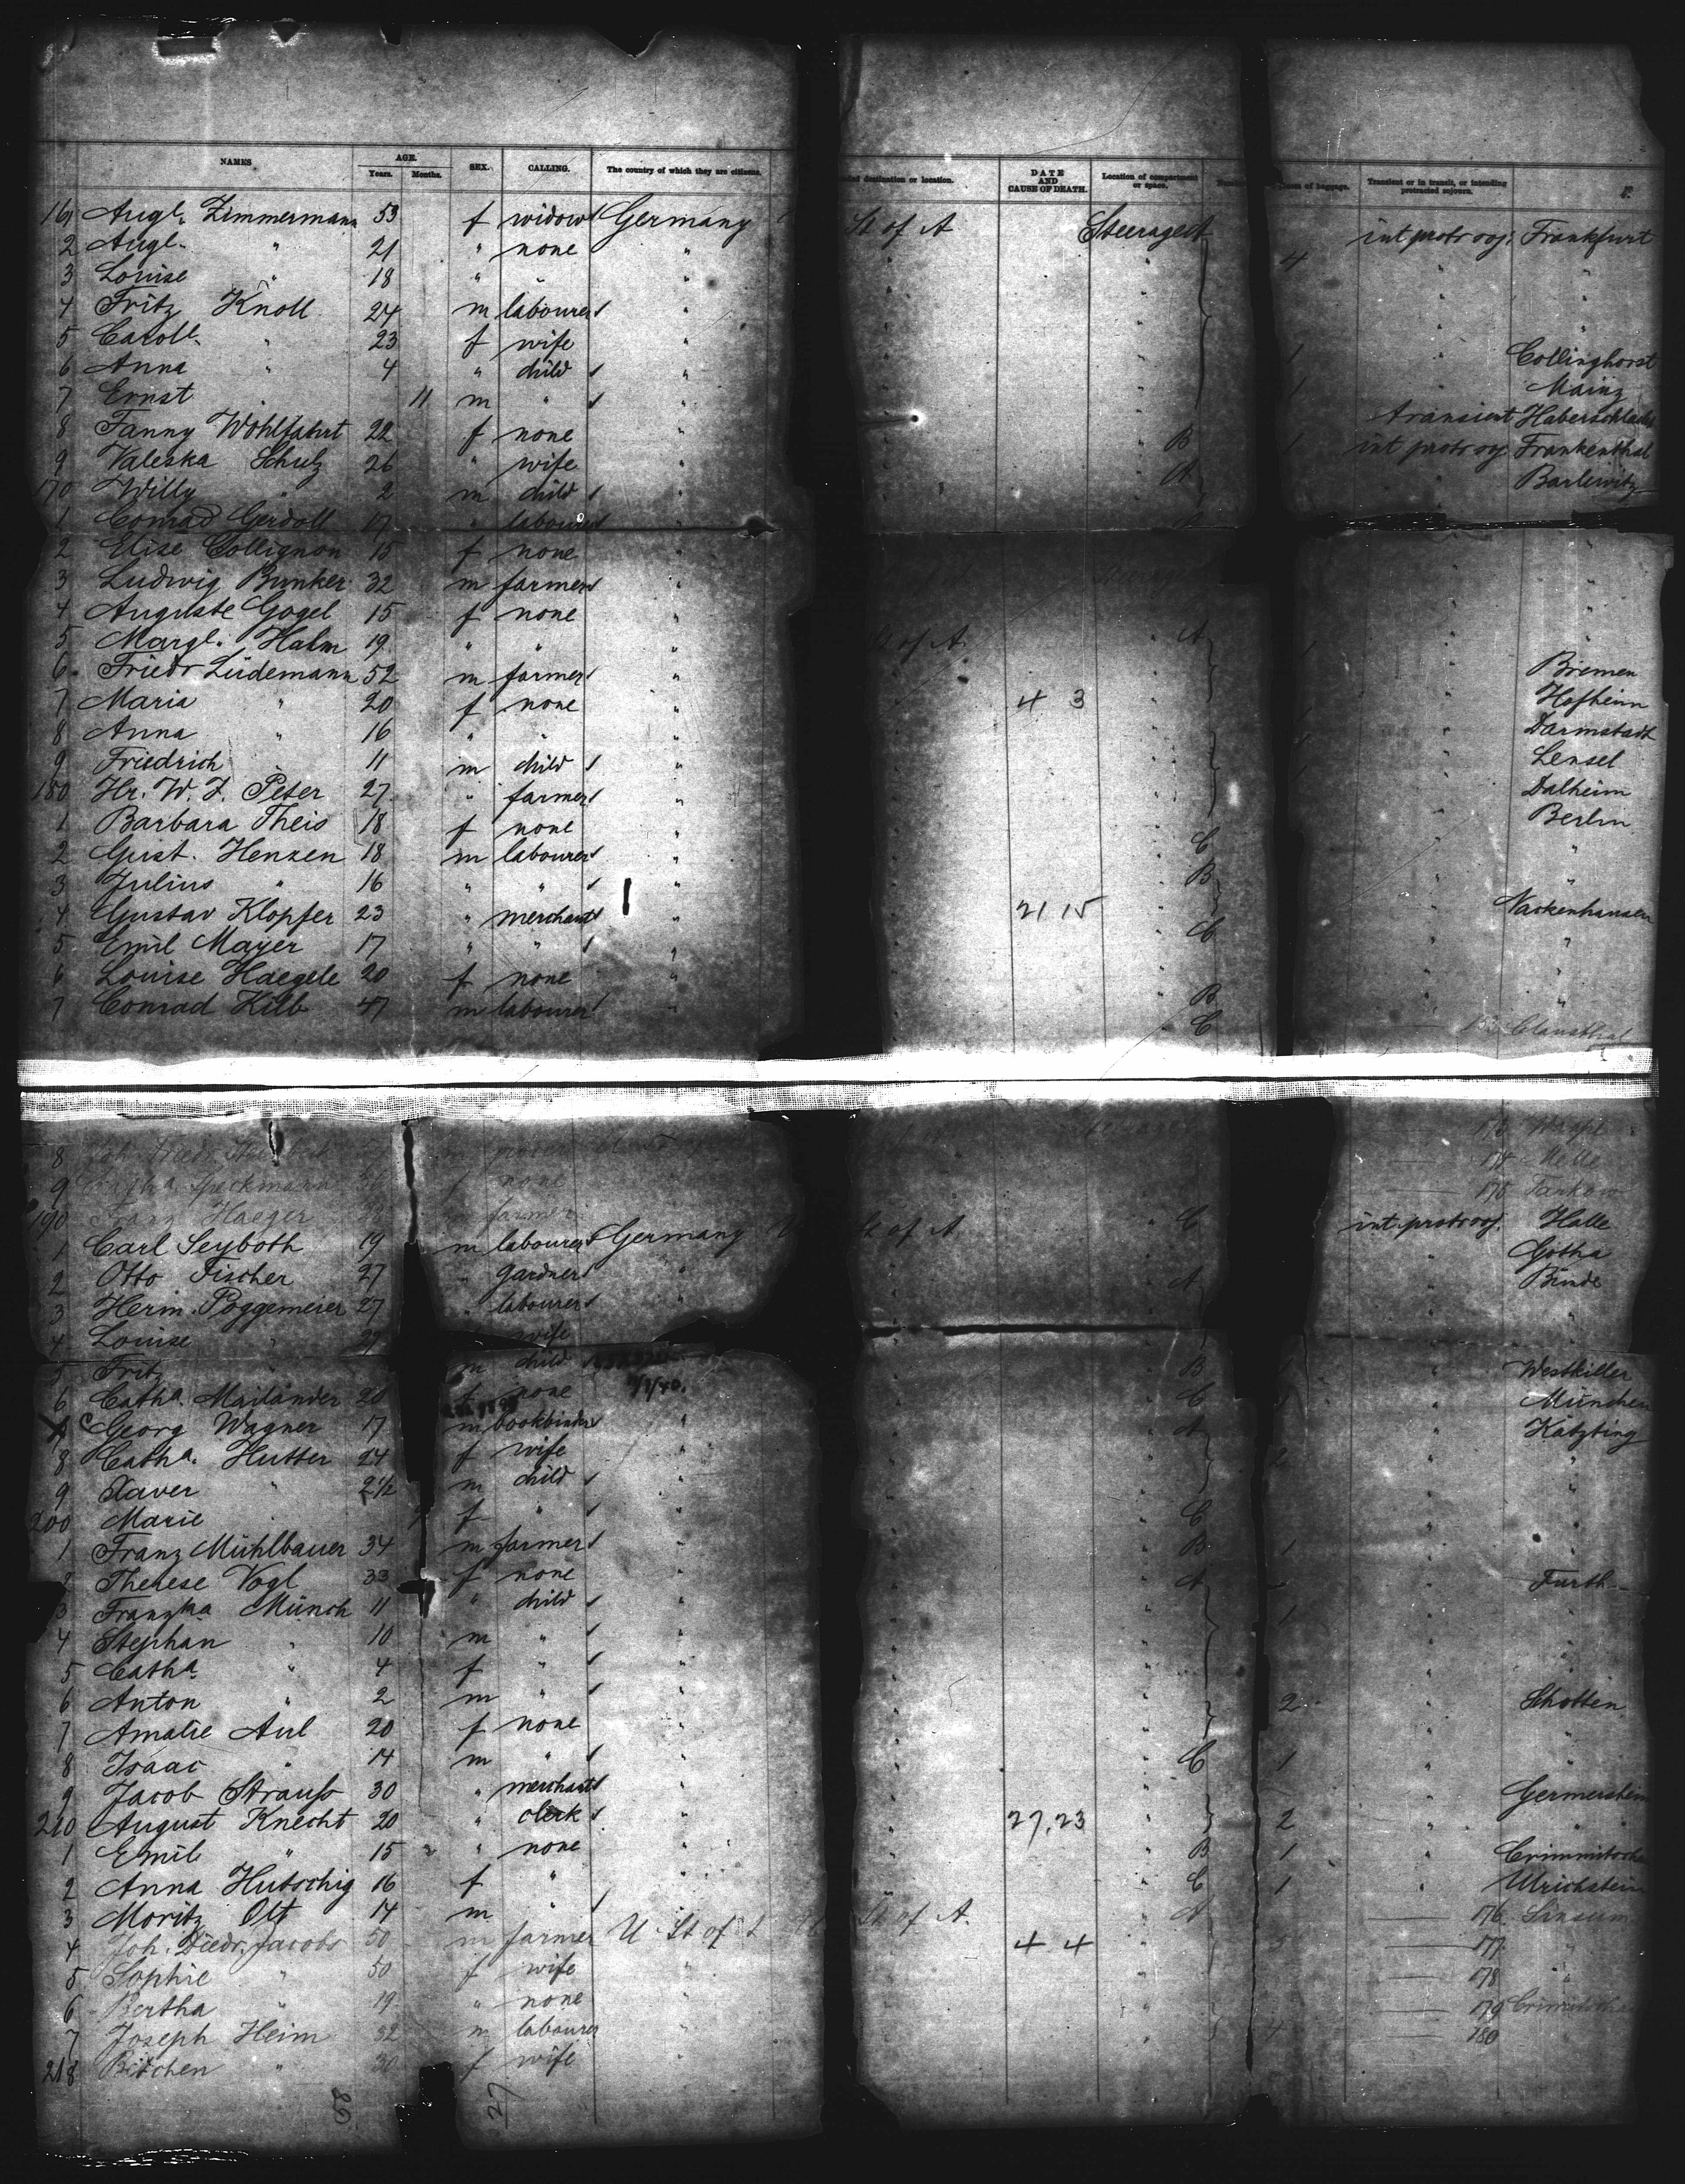 NAMES AGE. Years. Months. SEX. CALLING. The country of which they are citizens. destination or location. DATE AND CAUSE OF DEATH. Location of compartment or space. of baggage. Transient or in transit, or intending protracted sojourn.
161 Augte. Zimmermann 53 f widow Germany St of A Steerage int protr soj: Frankfurt
2 Augte. " 21 " none " 4
3 Louise " 18 " " "
4 Fritz Knoll 24 m labourer "
5 Carole. " 23 f wife " 1 " Collinghorst
6 Anna " 4 " child " 1 " Mainz
7 Ernst 11 m " " transient
8 Fanny Wohlfahrt 22 f none " B 1 int protr soj Frankenthal
9 Valeska Schulz 26 " wife " A Barlewitz
170 Willy " 2 m child "
1 Conrad Gerdolt 17 " labourer "
2 Elise Collignon 15 f none "
3 Ludwig Bunker 32 m farmer "
4 Auguste Gogel 15 f none "
5 Margt. Hahn 19 " " " St of A. A 1
6 Friedr Lüdemann 52 m farmer " Bremen
7 Maria " 20 f none " 4 3 Hofheim
8 Anna " 16 " " " Darmstadt
9 Friedrich 11 m child " Lensel
180 Hr. W. J. Peter 27 " farmer " Dalheim
1 Barbara Theis 18 f none " C Berlin
2 Gust. Henzen 18 m labourer " B "
3 Julius " 16 " " " "
4 Gustav Klopfer 23 " merchant " 21 15 C Nackenhausen
5 Emil Mayer 17 " " " "
6 Louise Haegele 20 f none " B "
7 Conrad Kilb 47 m labourer " C Clausthal
8
9 Speckmann f none 174 Melle
190 Franz Haeger farmer 175 Tarkow
1 Carl Seyboth 19 m labourer Germany St of A C int. protr soj. Halle
2 Otto Fischer 27 " gardner " " Gotha
3 Herm. Poggemeier 27 " labourer " A " Binde
4 Louise " 29 wife "
5 Fritz " m child B 1 " Westkiller
6 Catha. Mailänder 20 f none C 1 " München
Georg Wagner 17 m bookbinder " A " Kötzting
8 Catha. Hutter 24 f wife " 2 " "
9 Xaver " 2½ m child " " "
200 Marie " 9 f " " C " "
1 Franz Mühlbauer 34 m farmer " B 1 "
2 Therese Vogl 33 f none " A " Furth
3 Franzka Münch 11 " child " 1 "
4 Stephan " 10 m " " "
5 Catha " 4 f " " "
6 Anton " 2 m " " 2 " Schotten
7 Amalie Aul 20 f none " " "
8 Isaac " 14 m " " C 1 " "
9 Jacob Strauss 30 " merchant " " Germersheim
210 August Knecht 20 " clerk " 27.23 2 " "
1 Emil " 15 " none " B 1 "
2 Anna Hutschig 16 f " " C 1 " Ulrichstein
3 Moritz Olt 14 m " St of A. A 176 Sinsum
4 Joh. Diedr. Jacobs 50 m farmer U St of A 4 4 5 177 "
5 Sophie " 50 f wife " 178 "
6 Bertha " 19 " none " 179
7 Joseph Heim 32 m labourer " 180
218 Bitchen " 30 f wife "
27